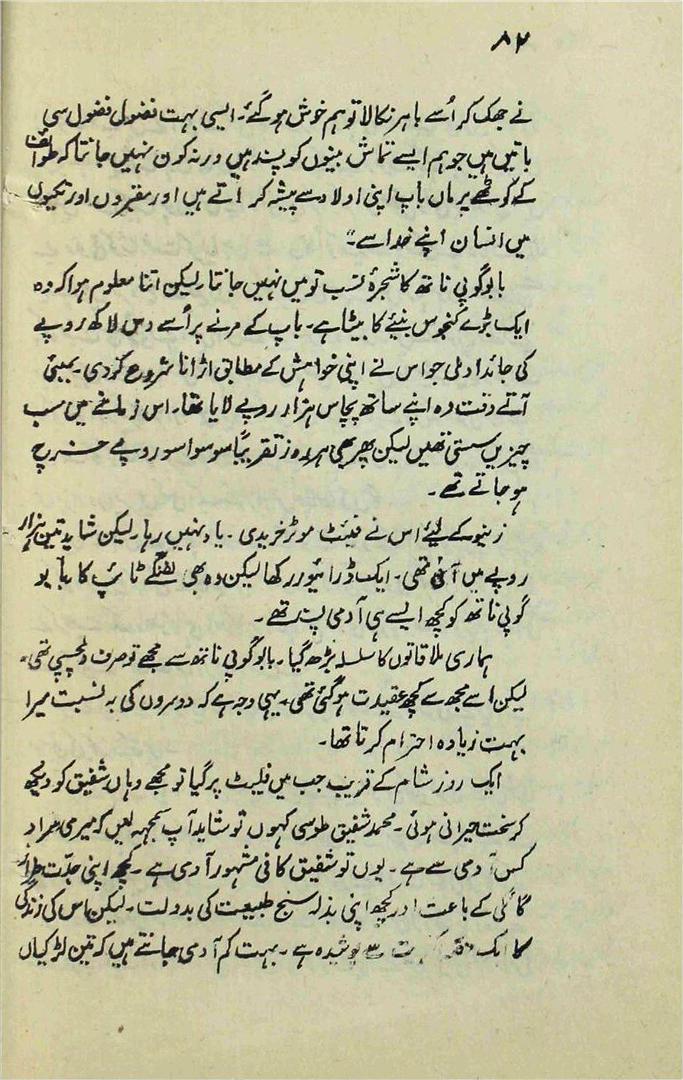 ۸۲
نے جھک کر اُسے باہر نکالا تو ہم خوش ہو گئے۔ ایسی بہت فضول فضول سی
باتیں ہیں جو ہم ایسے تماش بینوں کو پسند ہیں ورنہ کون نہیں جانتا کہ طوائف
کے کوٹھے پر ماں باپ اپنی اولاد سے پیشہ کراتے ہیں اور مقبروں اور تکیوں
میں انسان اپنے خدا سے۔"
بابو گوپی ناتھ کا شجرۂ نسب تو میں نہیں جانتا، لیکن اتنا معلوم ہوا کہ وہ
ایک بڑے کنجوس بنیئے کا بیٹا ہے۔ باپ کے مرنے پر اُسے دس لاکھ روپے
کی جائداد ملی جو اس نے اپنی خواہش کے مطابق اڑانا شروع کر دی۔ بمبئی
آتے وقت وہ اپنے ساتھ پچاس ہزار روپے لایا تھا۔ اس زمانے میں سب
چیزیں سستی تھیں لیکن پھر بھی ہر روز تقریباً سو سوا سو روپے خرچ
ہو جاتے تھے۔
زینو کے لئے اس نے فیئٹ موٹر خریدی۔ یاد نہیں رہا۔ لیکن شاید تین ہزار
روپے میں آئی تھی۔ ایک ڈرائیور رکھا لیکن وہ بھی لفنگے ٹائپ کا۔ بابو
گوپی ناتھ کو کچھ ایسے ہی آدمی پسند تھے۔
ہماری ملاقاتوں کا سلسلہ بڑھ گیا۔ بابو گوپی ناتھ سے مجھے تو صرف دلچسپی تھی۔
لیکن اسے مجھ سے کچھ عقیدت ہو گئی تھی۔ یہی وجہ ہے کہ دوسروں کی بہ نسبت میرا
بہت زیادہ احترام کرتا تھا۔
ایک روز شام کے قریب جب میں فلیٹ پر گیا تو مجھے وہاں شفیق کو دیکھ
کر سخت حیرانی ہوئی۔ محمد شفیق طوسی کہوں تو شاید آپ سمجھ لیں کہ میری مراد
کس آدمی سے ہے۔ یوں تو شفیق کافی مشہور آدمی ہے۔ کچھ اپنی جدّت طراز
گائکی کے باعث اور کچھ اپنی بذلہ سنج طبیعت کی بدولت۔ لیکن اس کی زندگی
کا ایک سے پوشیدہ ہے۔ بہت کم آدمی جانتے ہیں کہ تین لڑکیاں